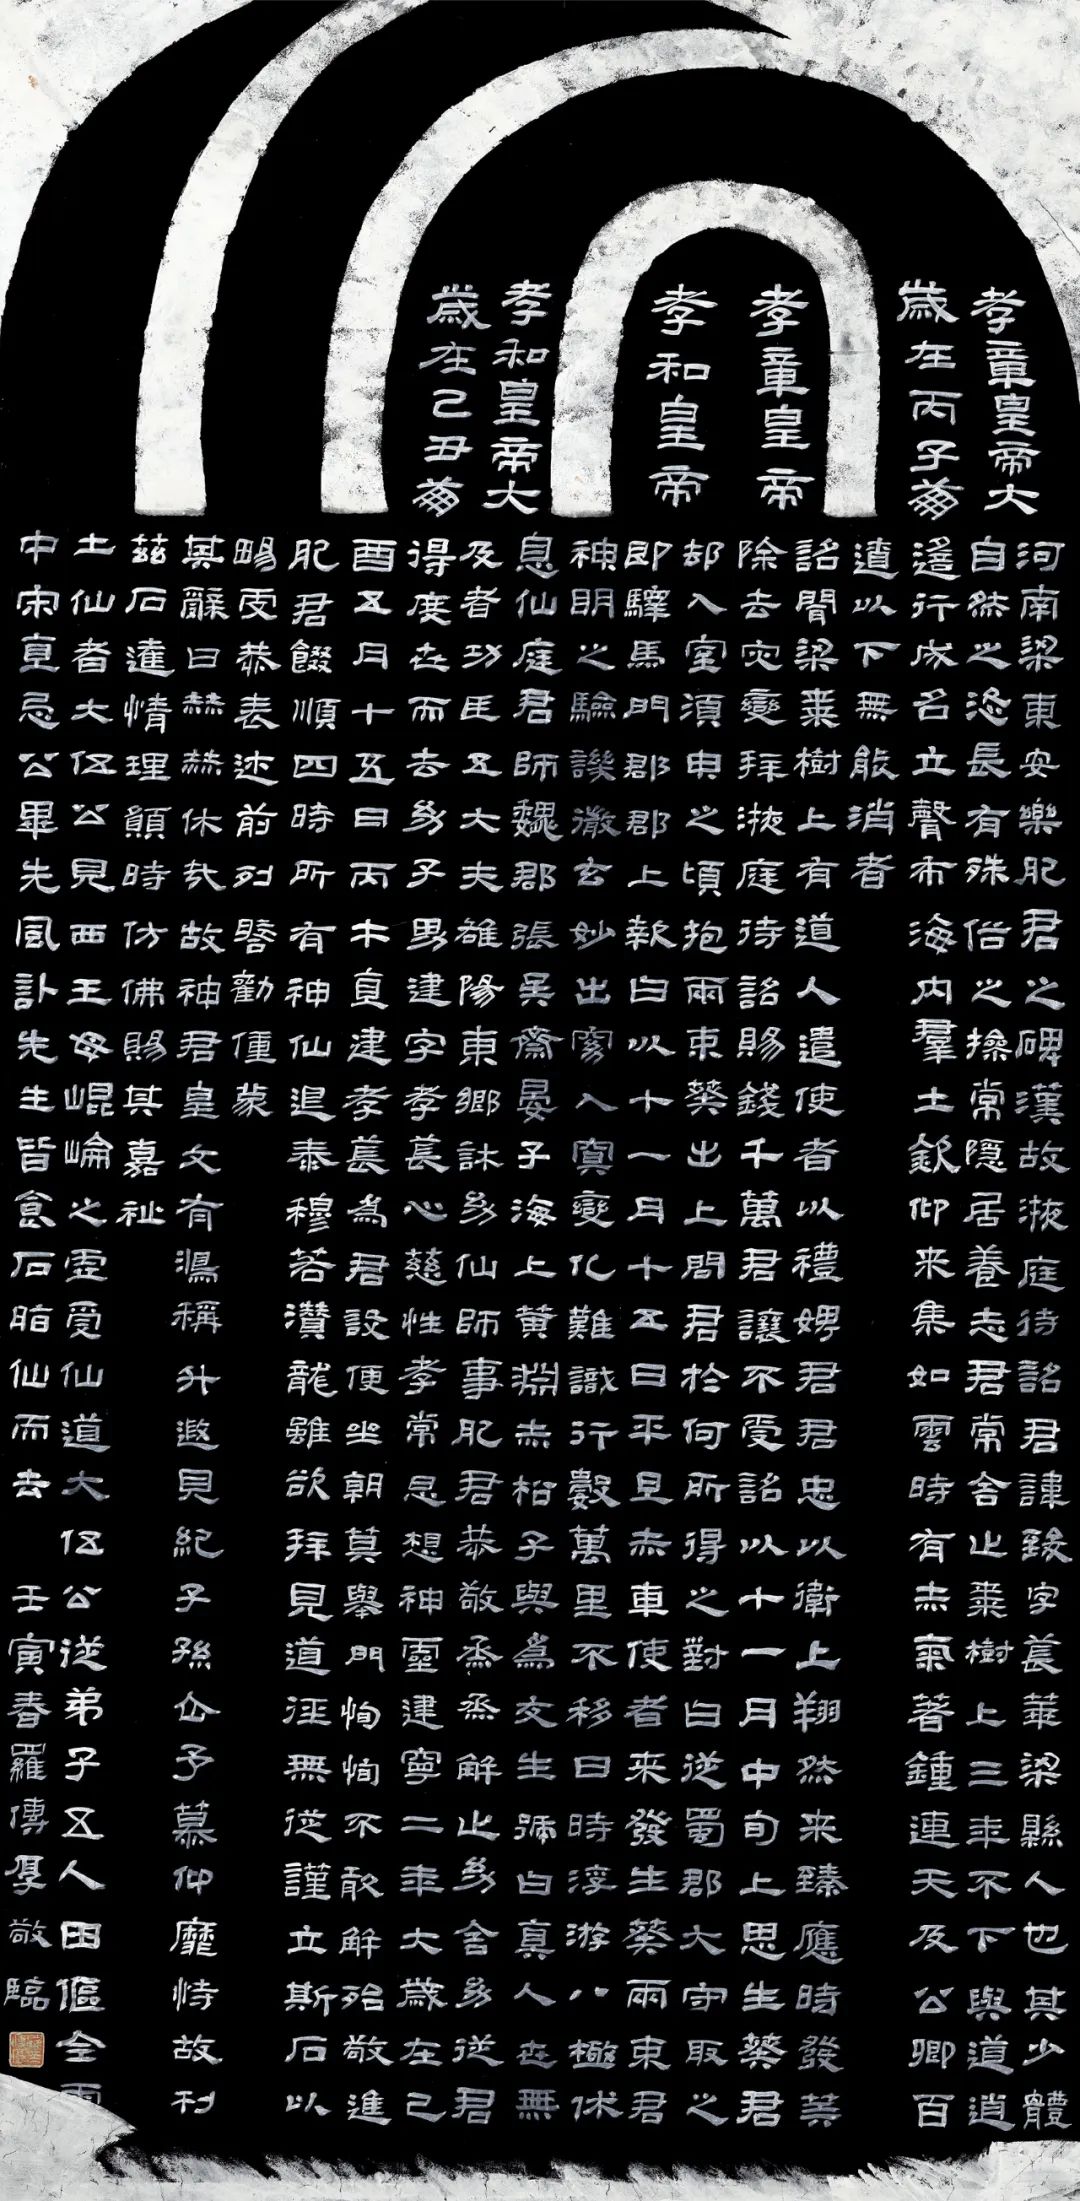 孝章皇帝大
歲在丙子崩
孝章皇帝
孝和皇帝
孝和皇帝大
歲在己丑崩
河南梁東安樂肥君之碑漢故掖庭待詔君諱致字萇華梁縣人也其少體
自然之恣長有殊俗之操常隱居養志君常舍止棗樹上三年不下與道逍
遙行成名立聲布海內羣士欽仰来集如雲時有赤氣著鍾連天及公卿百
遼以下無能消者
詔聞梁棗樹上有道人遣使者以禮娉君君忠以衛上翔然来臻應時發筭
除去灾變拜掖庭待詔賜錢千萬君讓不受詔以十一月中旬上思生葵君
却入室須申之頃抱兩束葵出上問君於何所得之對曰從蜀郡大守取之
即驛馬問郡郡上報曰以十一月十五日平旦赤車使者来發生葵兩束君
神明之驗譏徹玄妙出窈入冥變化難識行數萬里不移日時浮游八極休
息仙庭君師魏郡張吳齋晏子海上黃淵赤松子與為友生號曰真人世無
及者功臣五大夫雒陽東鄉許幼仙師事肥君恭敬烝烝解止幼舍幼從君
得度世而去幼子男建字孝萇心慈性孝常思想神靈建寧二年大歲在己
酉五月十五日丙午直建孝萇為君設便坐朝莫舉門恂恂不敢解殆敬進
肥君餟順四時所有神仙退泰穆若潛龍雖欲拜見道徑無從謹立斯石以
暢虔恭表述前列啓勸僮蒙
其辭曰赫赫休哉故神君皇又有鴻稱升遐見紀子孫企予慕仰靡恃故刊
茲石達情理願時仿佛賜其嘉祉
土仙者大伍公見西王母崐崘之虛受仙道大伍公從弟子五人田傴全雨
中宋直忌公畢先風許先生皆食石脂仙而去 壬寅春羅傳厚敬臨